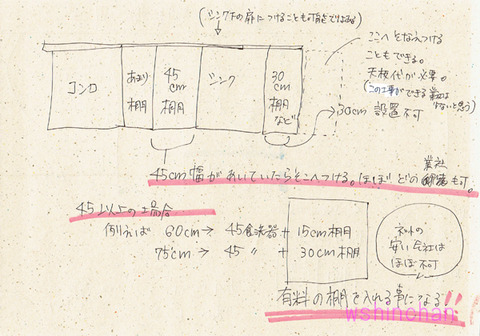 (シンク下の扉につけることも可能ではある)
ここへそなえつける
こともできる。
天板代が必要。
(この工事ができる業者は
少ないと思う)
コンロ
あまり
棚
45
cm
棚
シンク
30
cm
棚
など
30cm 設置不可
45cm 幅があいていたらそこへつける。ほぼどの業社も可。
45以上の場合
例えば 60cm→ 45食洗器 + 15cm棚
75cm→ 45 〃 + 30cm棚
ネットの
安い会社は
ほぼ不可
有料の棚を入れる事になる!!
wshinchan